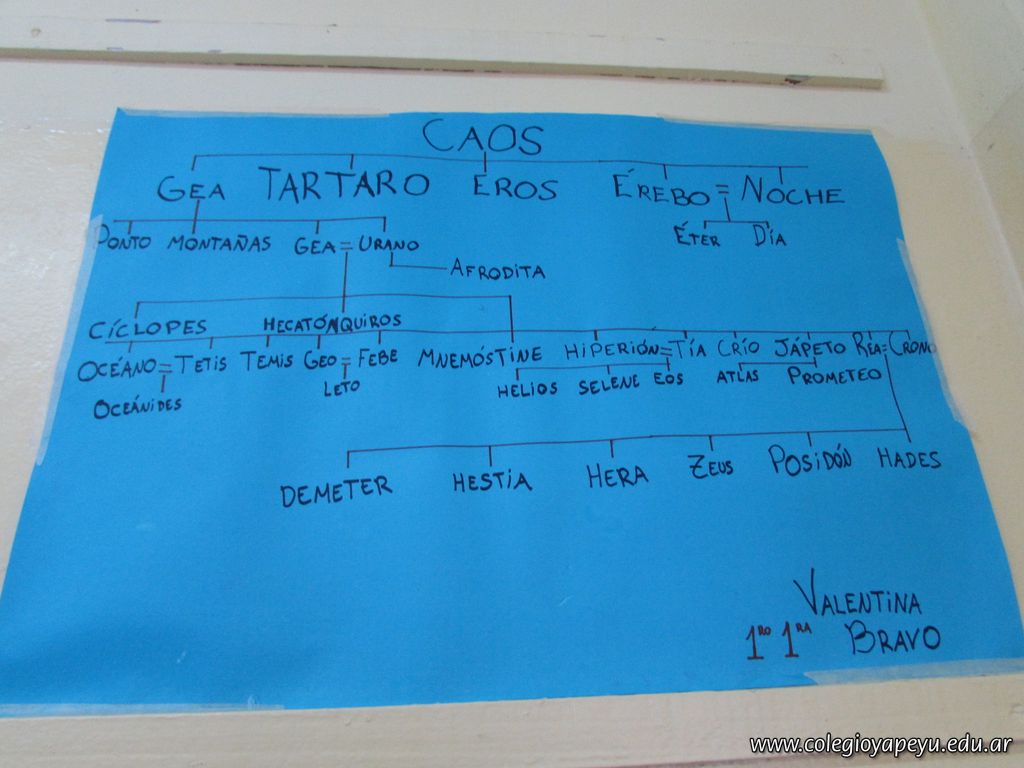 CAOS
GEA TARTARO EROS ÉREBO = NOCHE
PONTO MONTAÑAS GEA = URANO ÉTER DÍA
AFRODITA
CÍCLOPES HECATÓNQUIROS
OCÉANO = TETIS TEMIS GEO = FEBE MNEMÓSTINE HIPERIÓN = TÍA CRÍO JÁPETO REA = CRONO
OCEÁNIDES LETO HELIOS SELENE EOS ATLAS PROMETEO
DEMETER HESTIA HERA ZEUS POSIDÓN HADES
VALENTINA
1RO 1RA BRAVO
www.colegioyapeyu.edu.ar